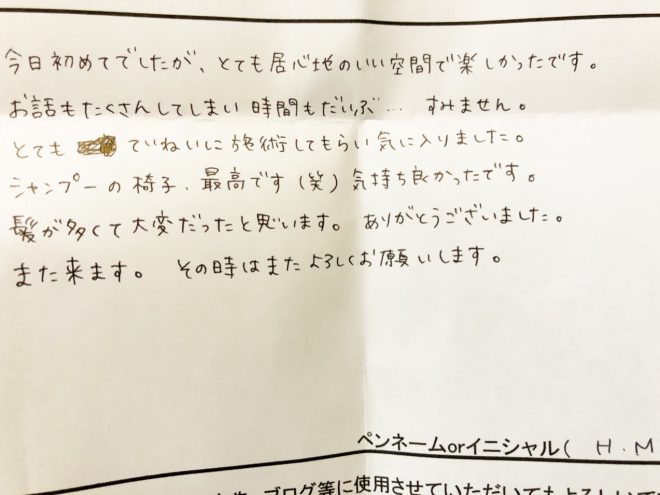 今日初めてでしたが、とても居心地のいい空間で楽しかったです。
お話もたくさんしてしまい時間もだいぶ… すみません。
とても ていねいに施術してもらい気に入りました。
シャンプーの椅子、最高です(笑)気持ち良かったです。
髪が多くて大変だったと思います。ありがとうございました。
また来ます。 その時はまたよろしくお願いします。
ペンネームorイニシャル( H.M
ブログ等に使用させていただいてもよろしいで